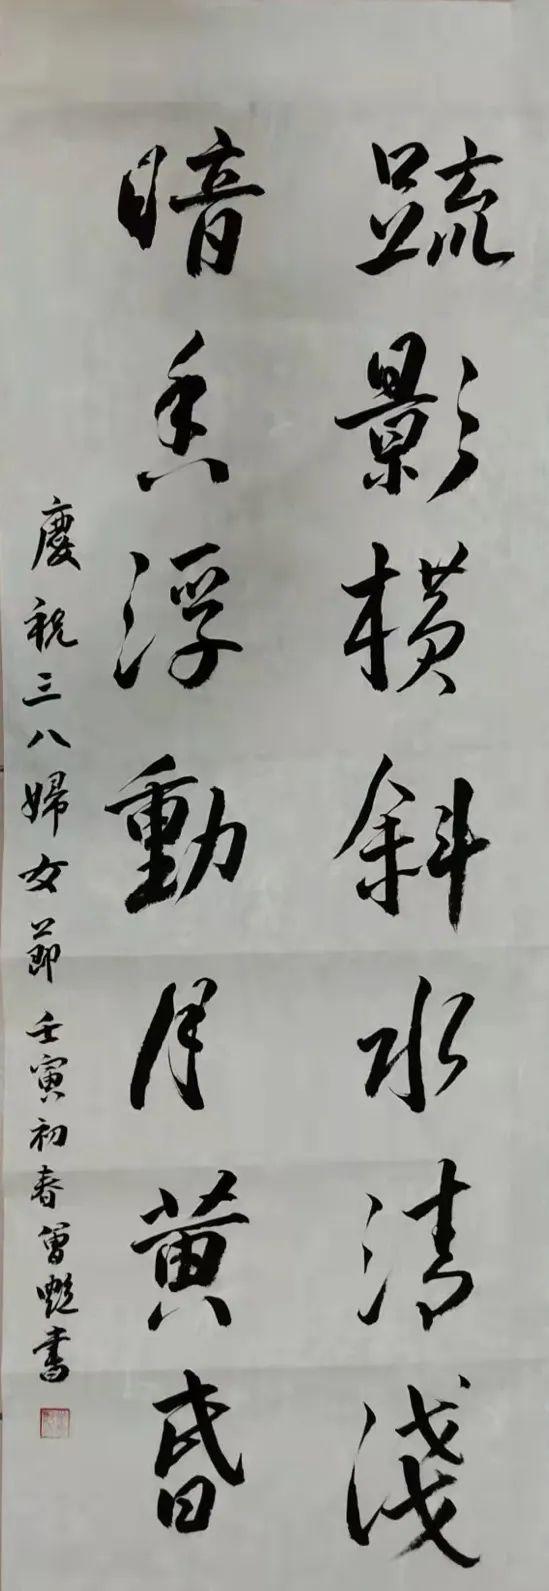 疏影横斜水清淺
暗香浮動月黄昏
慶祝三八婦女節 壬寅初春曾艷書